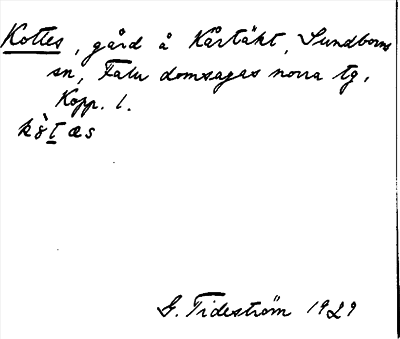 Kottes, gård å Kårtäkt, Sundborns
sn, Falu domsagas norra tg,
Kopp. l.
kò̀tæs
G. Tideström 1929